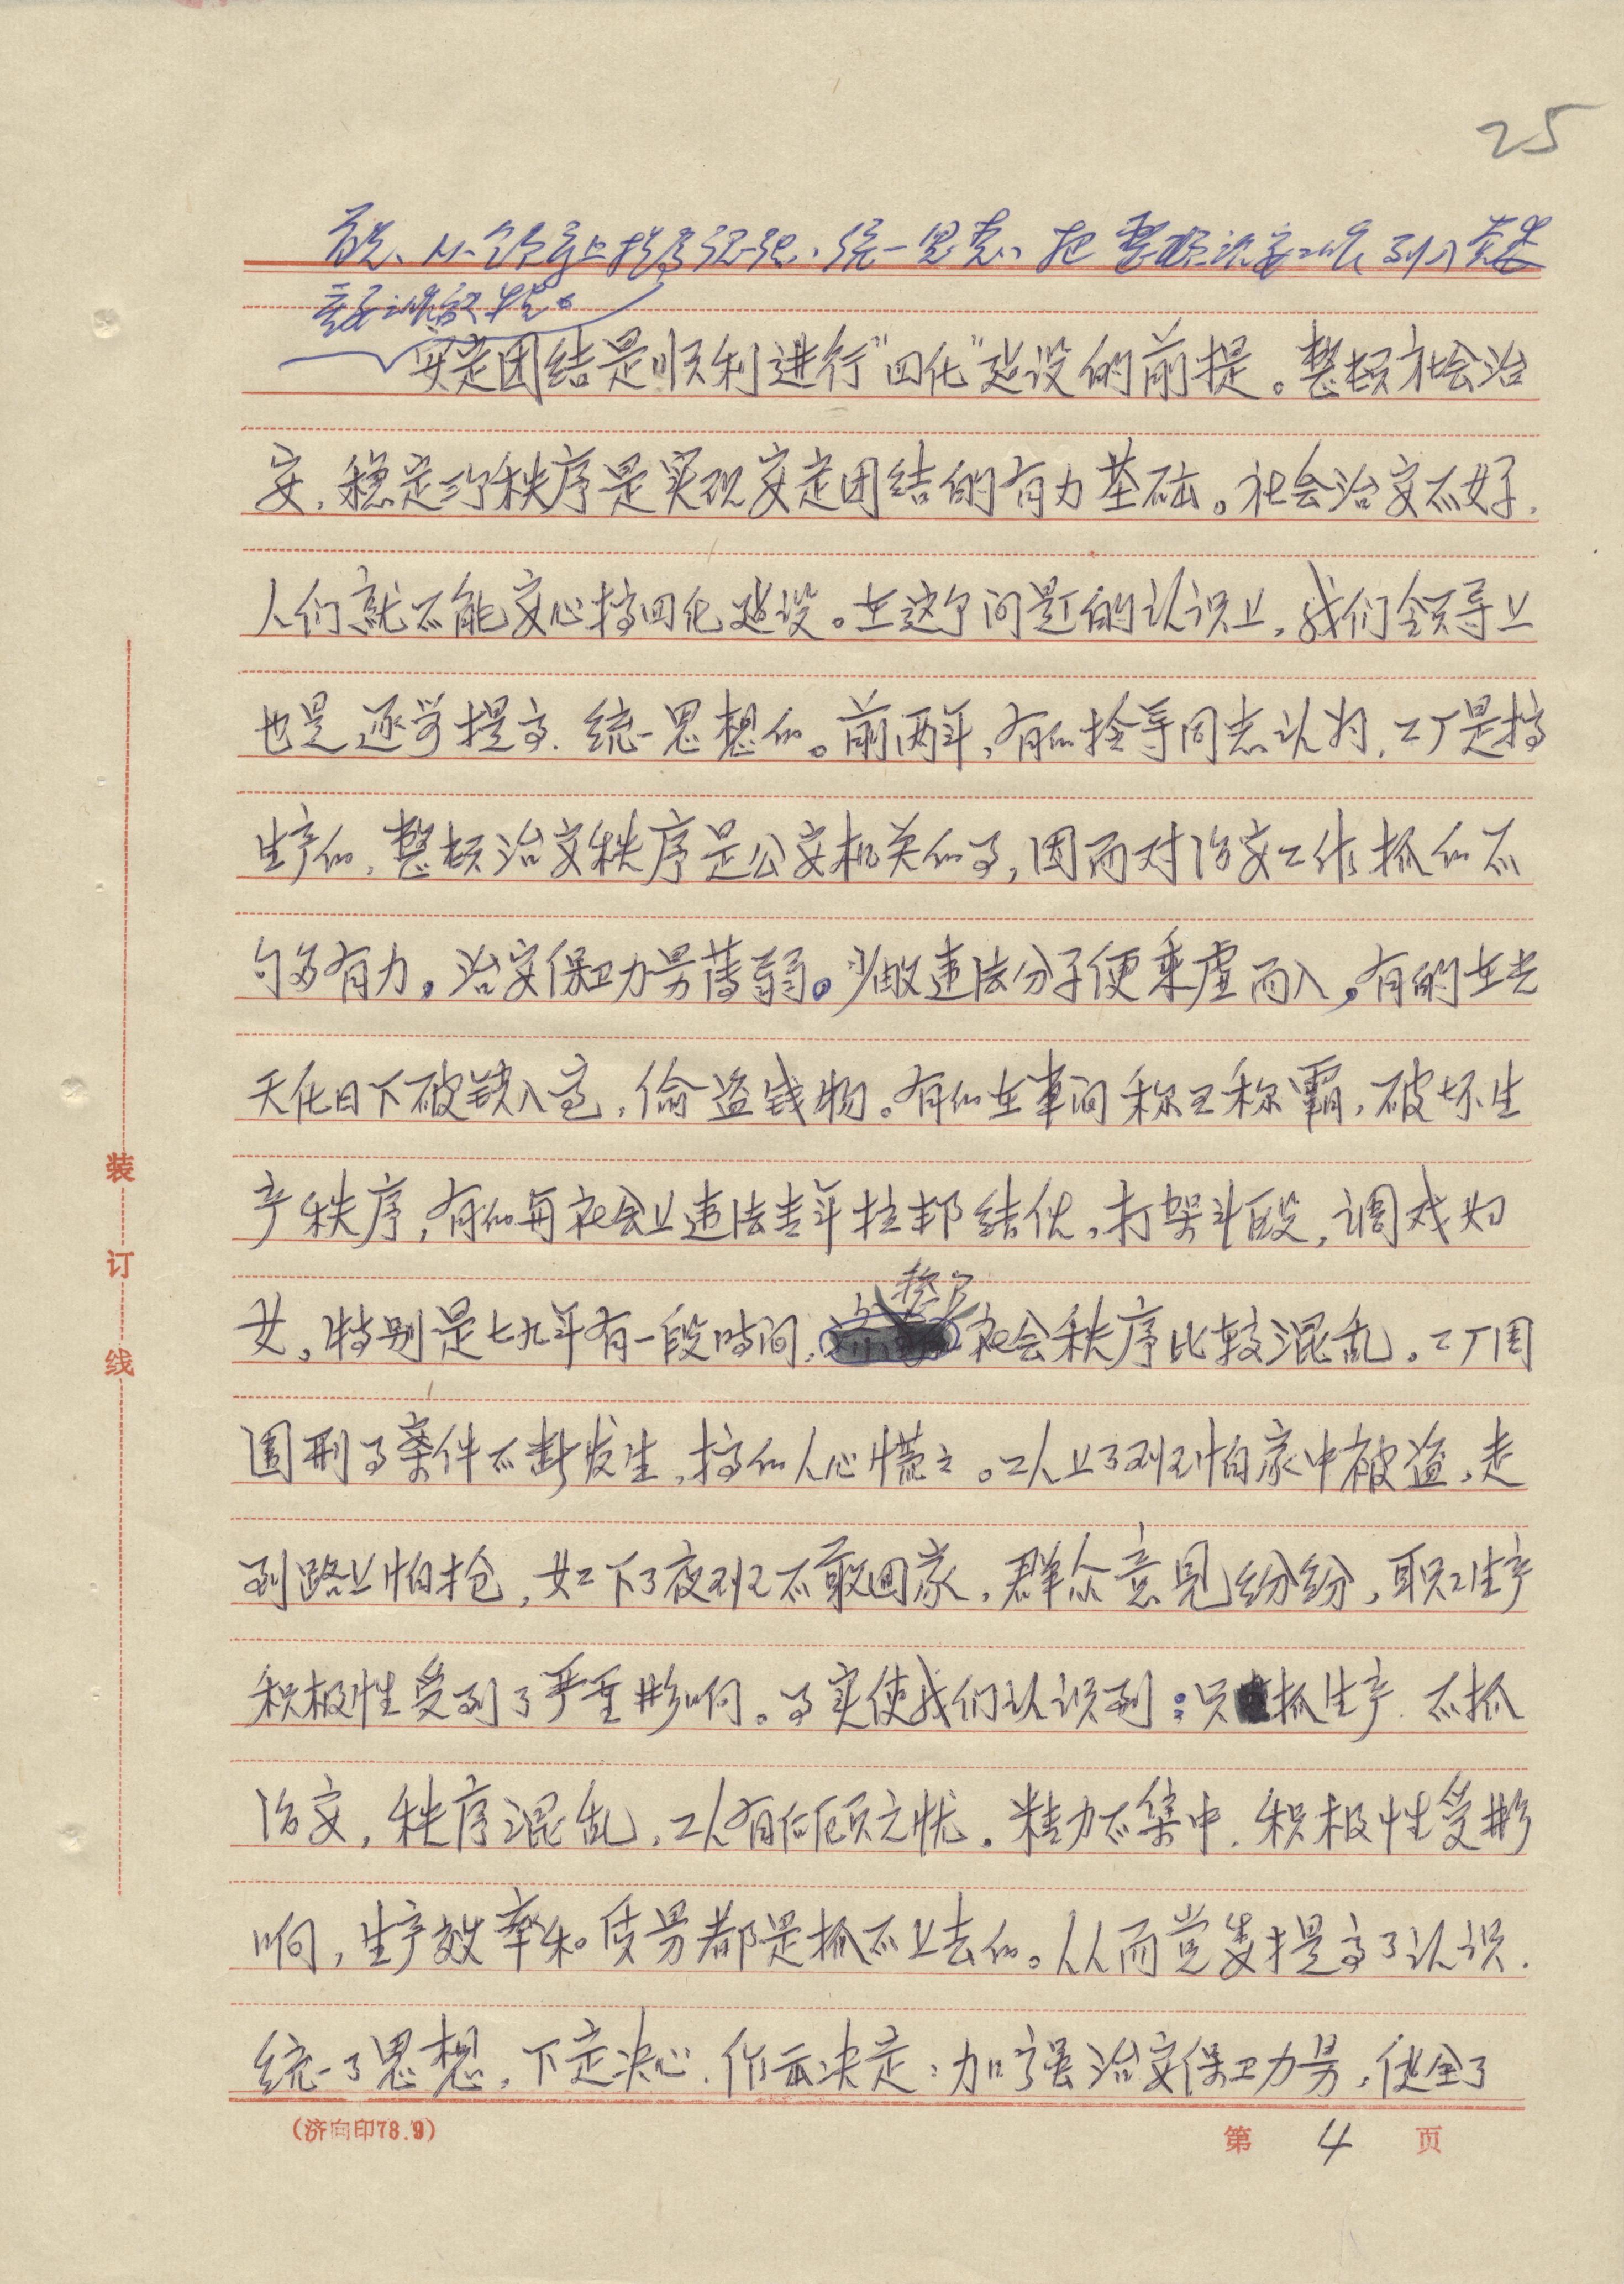 25
首先、从领导上提高认识、统一思想、把整顿治安工作列入党委
重要议事日程。
安定团结是顺利进行“四化”建设的前提。整顿社会治
安，稳定的秩序是实现安定团结的有力基础。社会治安不好，
人们就不能安心搞四化建设。在这个问题的认识上，我们领导上
也是逐步提高、统一思想的。前两年，有的领导同志认为，工厂是搞
生产的，整顿治安秩序是公安机关的事，因而对治安工作抓的不
够有力，治安保卫力量薄弱。少数违法分子便乘虚而入，有的在光
天化日下破锁入室，偷盗钱物。有的在车间称王称霸，破坏生
产秩序，有的与社会上违法青年拉邦结伙，打架斗殴，调戏妇
女。特别是七九年有一段时间，整个社会秩序比较混乱。工厂周
围刑事案件不断发生，搞的人心慌慌。工人上了班怕家中被盗，走
到路上怕抢，女工下了夜班不敢回家，群众意见纷纷，职工生产
积极性受到了严重影响。事实使我们认识到：只抓生产、不抓
治安，秩序混乱，工人有后顾之忧，精力不集中，积极性受影
响，生产效率和质量都是抓不上去的。从而党委提高了认识，
统一了思想，下定决心，作出决定：加强治安保卫力量，健全了
装
订
线
(济向印78.9)
第 4 页